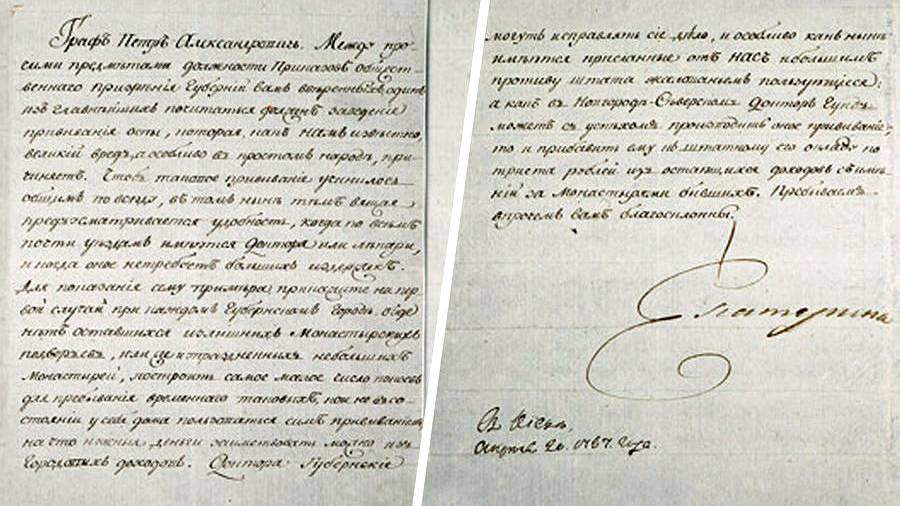 Графъ Петръ Александровичь. Между про-
чими предметами должности Приказовъ общест-
веннаго призрѣнія Губерній вамъ ввѣренныхъ, одинъ
изъ главнѣйшихъ почитаться долженъ заведеніе
прививанія оспы, которая, какъ намъ извѣстно,
великій вредъ, а особливо въ простомъ народѣ, при-
чиняетъ. Чтобъ таковое прививаніе учинилось
общимъ повсюду, въ томъ нынѣ тѣмъ вящая
предъусматривается удобность, когда по всѣмъ
почти уѣздамъ имѣются Доктора или лѣкари,
и когда оное не требуетъ большихъ издержекъ.
Для показанія сему примѣра, прикажите на пер-
вой случай при каждомъ Губернскомъ Городѣ, въ
оставшихся излишнихъ Монастырскихъ
подворьевъ, или же изпраздненныхъ небольшихъ
Монастырей, построить самое малое число покоевъ
для пребыванія временнаго таковыхъ, кои не въ со-
стояніи у себя дома пользоваться симъ прививаніемъ,
на что нужныя деньги заимствовать можно изъ
Городскихъ доходовъ. Доктора Губернскіе
могутъ исправлять сіе дѣло, и особливо какъ нынѣ
имѣются присланные отъ НАСЪ небольшимъ
противу штата жалованьемъ пользующіеся:
а какъ въ Новгородѣ-Сѣверскомъ Докторъ Гунъ
можетъ съ успѣхомъ производить оное прививаніе,
то и прибавить ему къ штатному его окладу по
триста рублей изъ остающихся доходовъ съ имѣ-
ній за Монастырями бывшихъ. Пребываемъ
впрочемъ вамъ благосклонны.
Екатерина
Въ Кіевѣ,
Апрѣля 20. 1787. года.